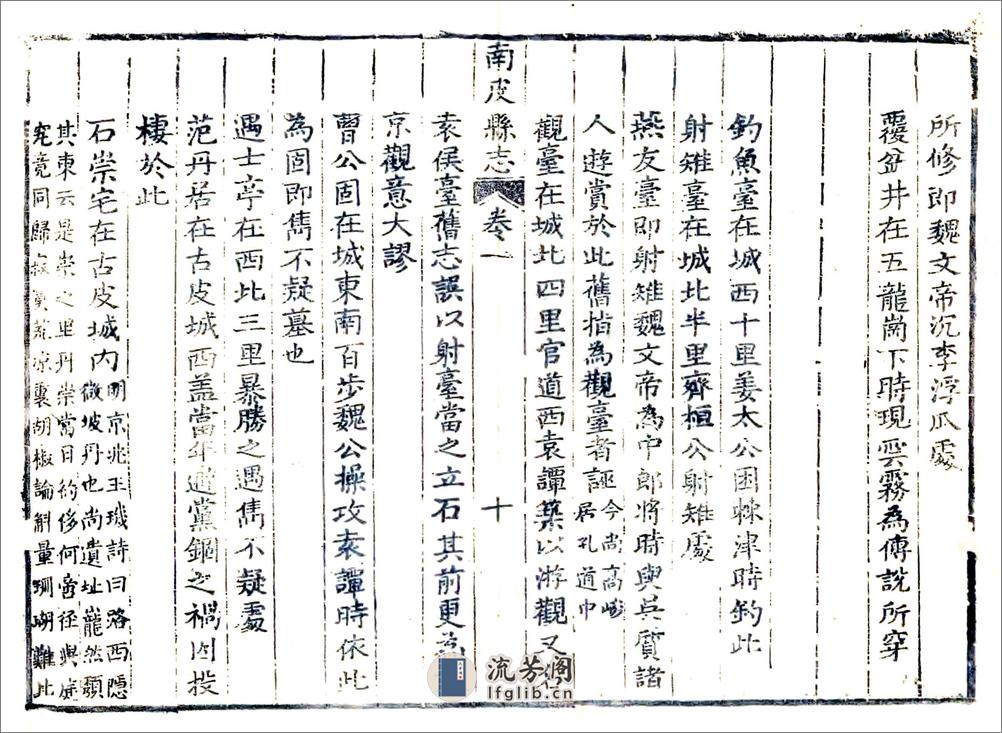 所修即魏文帝沉李浮瓜處
覆盆井在五龍崗下時現雲霧為傅說所穿
釣魚臺在城西十里姜太公困棘津時釣此
射雉臺在城北半里齊桓公射雉處
燕友臺即射雉魏文帝為中郎將時與吳質諸
人遊賞於此舊指為觀臺者誣今尚高峻居孔道中
觀臺在城北四里官道西袁譚築以游觀又
南皮縣志 卷一 十
袁侯臺舊志誤以射臺當之立石其前更為
京觀意大謬
曹公固在城東南百步魏公操攻袁譚時依此
為固即雋不疑墓也
遇士亭在西北三里暴勝之遇雋不疑處
范丹居在古皮城西盖當年遭黨錮之禍因投
棲於此
石崇宅在古皮城内明京兆王璣詩曰路西隱
微坡丹也尚遺址巃然頹
其東云是崇之里丹崇當日約侈何啻径與庭
究竟同歸荒凉裏胡椒論斛量珊瑚難比
流芳阁
lfglib.cn